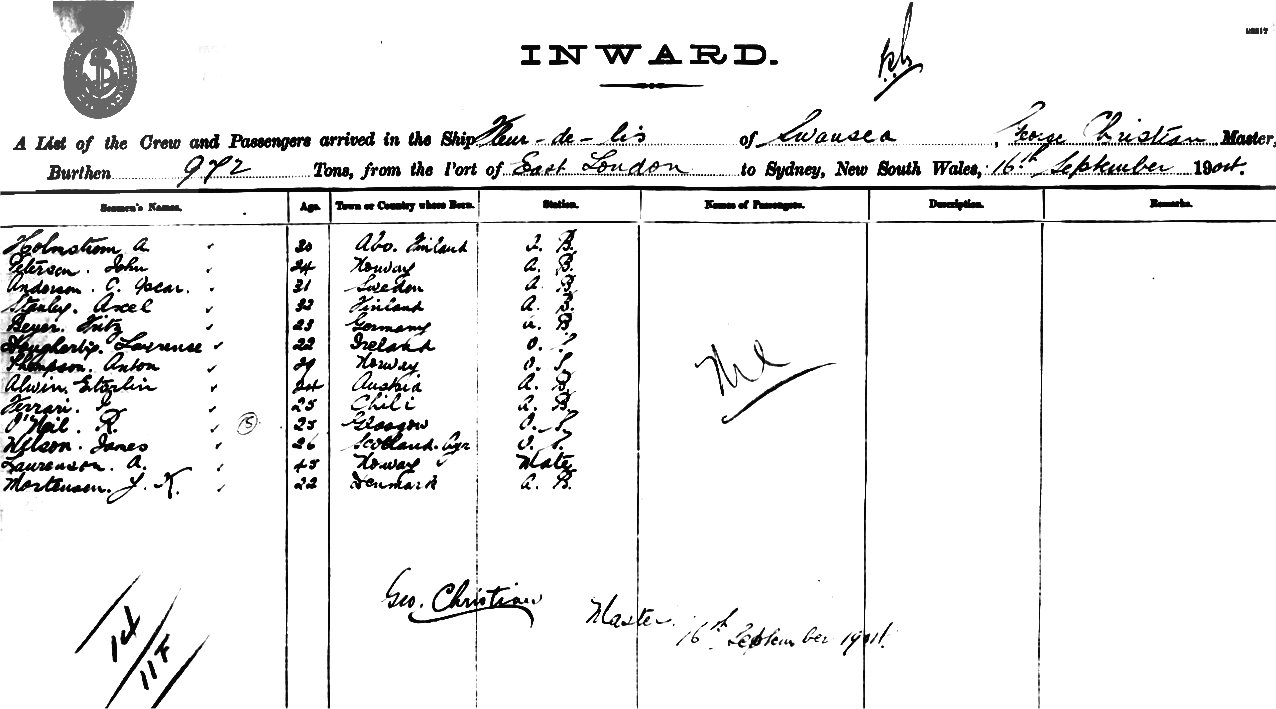 INWARD.
A List of the Crew and Passengers arrived in the Ship Fleur-de-lis of Swansea, George Christian Master,
Burthen 972 Tons, from the Port of East London to Sydney, New South Wales, 16th September 1901.
Seamen's Names. Age. Town or Country where Born. Station. Names of Passengers. Description. Remarks.
Holmstrom A. 20 Abo. Finland A. B.
Peterson. John 24 Norway A. B.
Anderson. C. Oscar. 21 Sweden A. B.
Stanley. Axel Finland A. B.
Beyer. Fritz 23 Germany A. B.
Daugherty. Lawrense 22 Ireland O. S.
Thompson. Anton 29 Norway O. S.
Alwin. 24 Austria A. B.
Ferrari. 25 Chili A. B.
O'Neil. R. 25 Glasgow O. S.
Nelson. James 26 Scotland. Ayr O. S.
Laurenson. A. 45 Norway Mate
Mortensen. J. K. 22 Denmark A. B.
Nil
Geo. Christian Master
16th September 1901.